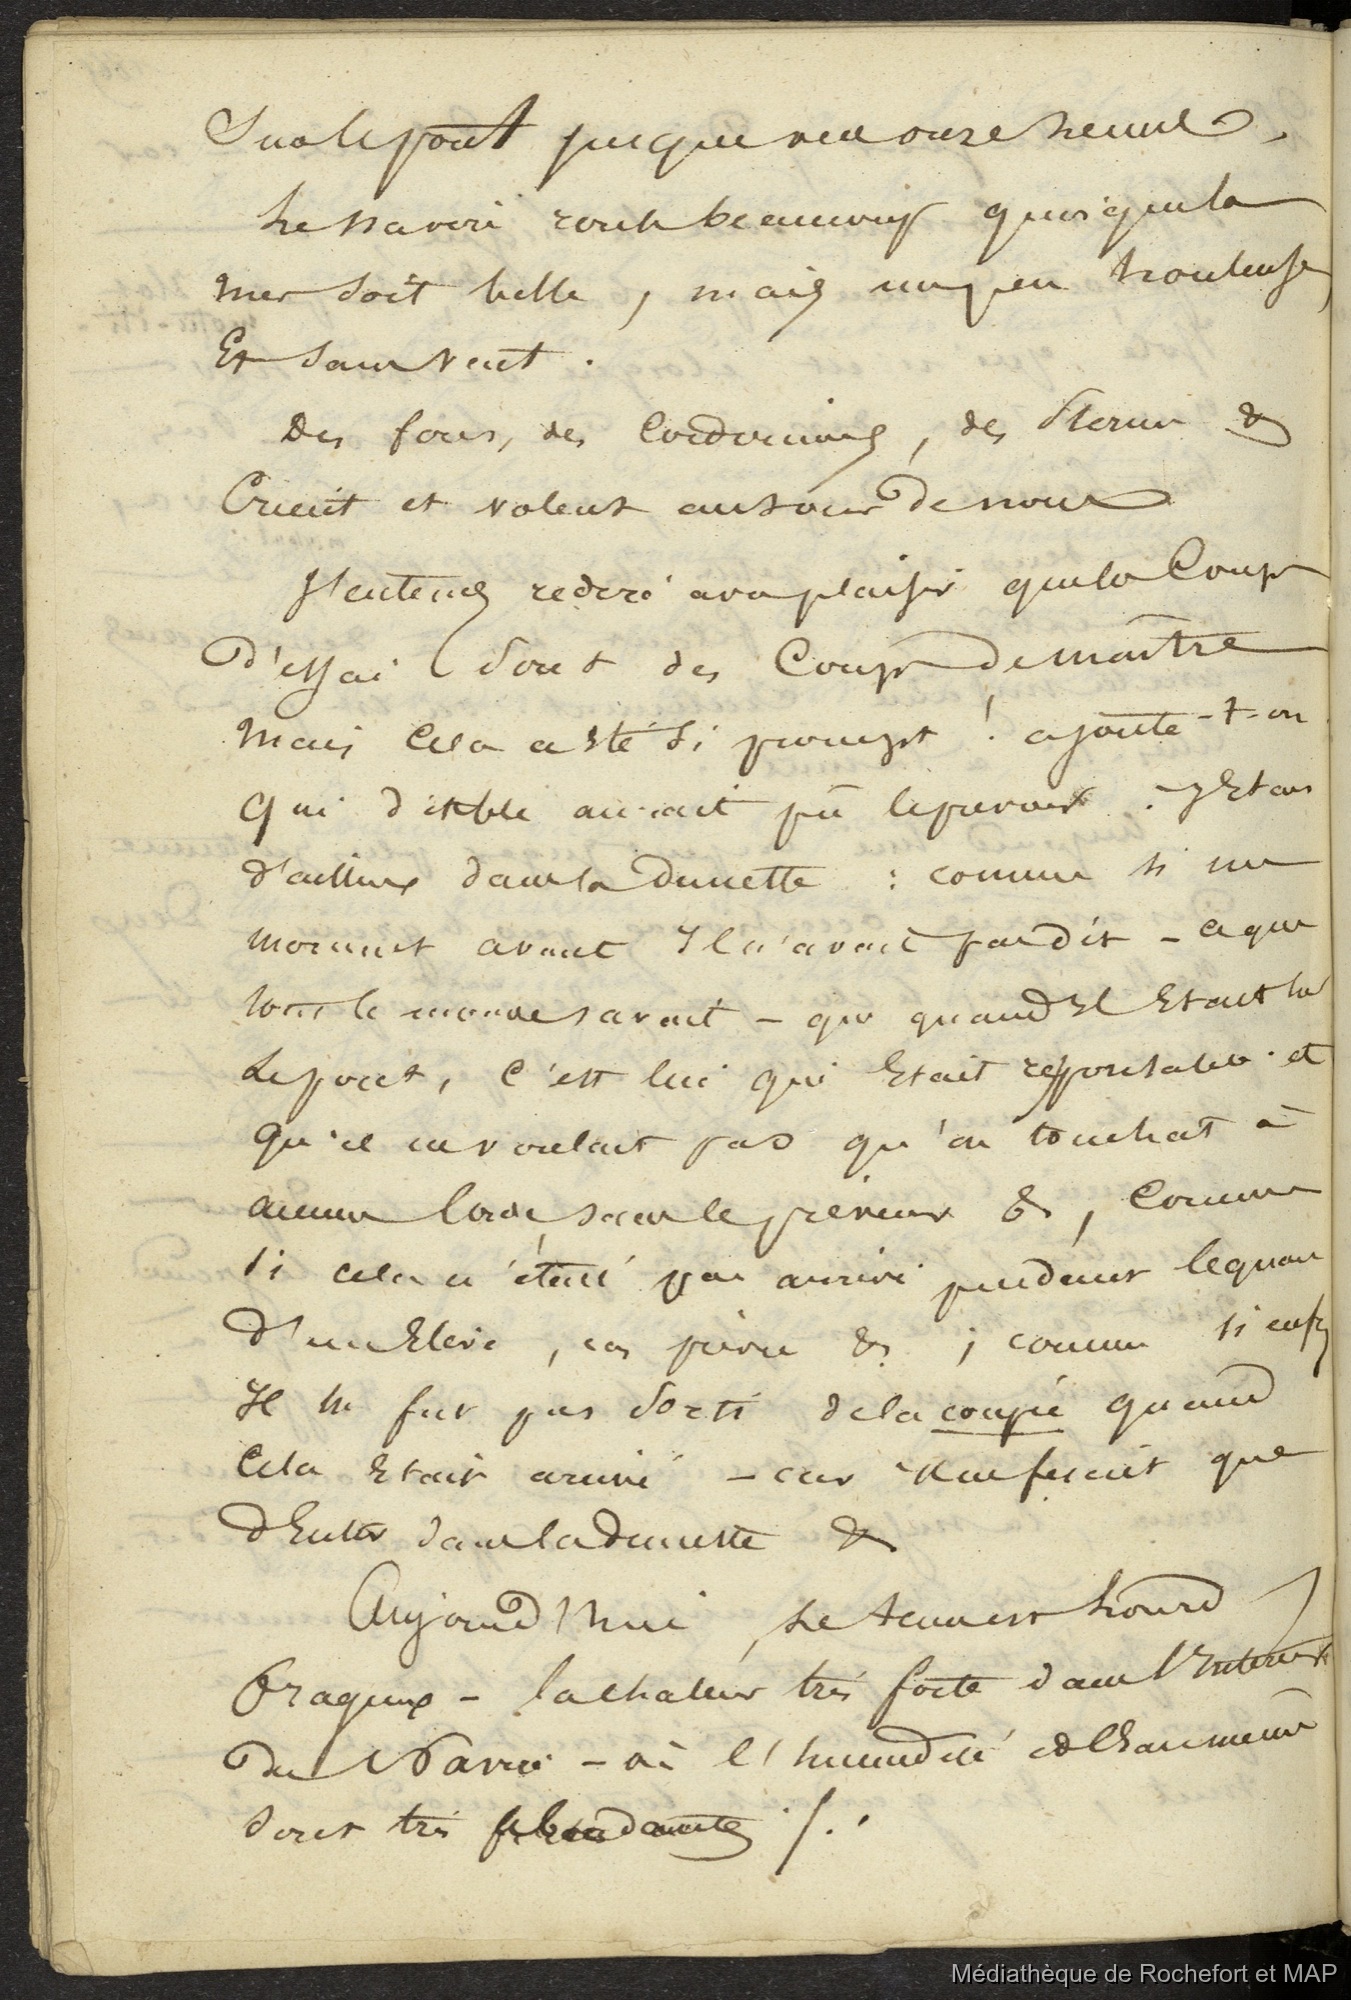 Sur le pont jusque vers onze heures.
Le navire roule beaucoup quoique la
mer soit belle, mais un peu houleuse,
Et sans vent.
Des fous, des Cordonniers, des Sternes &
Crient et volent autour de nous
J'entends redire avec plaisir que les Coups
d'essai sont des Coups de maître
Mais Cela a été si prompt ! ajoute-t-on
Qui diable aurait pû le prévoir. J'étais
d'ailleurs dans la Dunette : comme si un
moment avant Il n'avait pas dit - ce que
tout le monde savait - que quand Il Etait sur
Le pont, C'est lui qui Etait responsable. et
Qu'il ne voulait pas qu'on touchat à
aucun Corde, sans le prévenir &, Comme
si cela n'était pas arrivé pendant le quart
d'un Elève, en pareil &; comme si enfin
Il ne fut pas sorti de la coupée quand
Cela Etait arrivé - car Il ne fesait que
d'Entrer dans la dunette &
Aujourd'hui, Le tems est lourd
Orageux - la chaleur très forte dans l'Interieur
Du Navire - où l'humidité et l'Eau même
sont très abondantes /.
Médiathèque de Rochefort et MAP